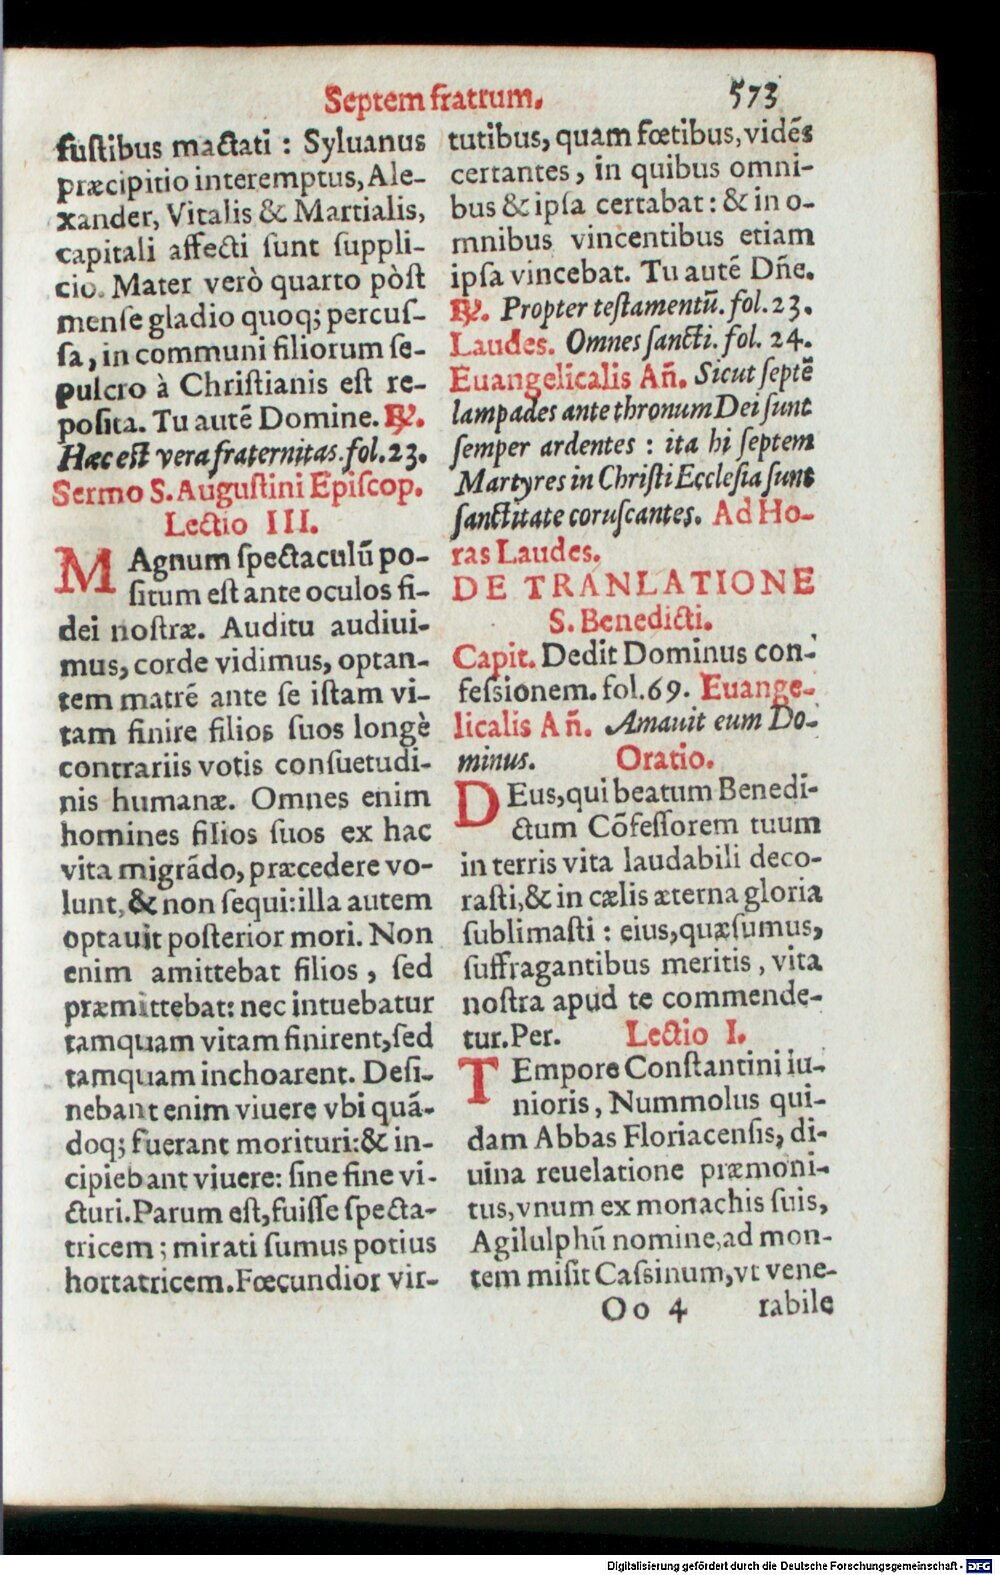 Septem fratrum. 573
fuſtibus mactati : Syluanus
præcipitio interemptus, Ale-
xander, Vitalis & Martialis,
capitali affecti ſunt ſuppli-
cio. Mater verò quarto pòſt
menſe gladio quoq; percuſ-
ſa, in communi filiorum ſe-
pulcro à Chriſtianis eſt re-
poſita. Tu autē Domine. ℟.
Hæc eſt vera fraternitas. fol. 23.
Sermo S. Auguſtini Epiſcop.
Lectio III.
MAgnum ſpectaculū po-
ſitum eſt ante oculos fi-
dei noſtræ. Auditu audiui-
mus, corde vidimus, optan-
tem matrē ante ſe iſtam vi-
tam finire filios ſuos longè
contrariis votis conſuetudi-
nis humanæ. Omnes enim
homines filios ſuos ex hac
vita migrādo, præcedere vo-
lunt, & non ſequi: illa autem
optauit poſterior mori. Non
enim amittebat filios , ſed
præmittebat: nec intuebatur
tamquam vitam finirent, ſed
tamquam inchoarent. Deſi-
nebant enim viuere vbi quā-
doq; fuerant morituri: & in-
cipiebant viuere: ſine fine vi-
cturi. Parum eſt, fuiſſe ſpecta-
tricem ; mirati ſumus potius
hortatricem. Fœcundior vir-
tutibus, quam fœtibus, vidēs
certantes , in quibus omni-
bus & ipſa certabat : & in o-
mnibus vincentibus etiam
ipſa vincebat. Tu autē Dñe.
℟. Propter teſtamentū. fol. 23.
Laudes. Omnes ſancti. fol. 24.
Euangelicalis Añ. Sicut ſeptē
lampades ante thronum Dei ſunt
ſemper ardentes : ita hi ſeptem
Martyres in Chriſti Eccleſia ſunt
ſanctitate coruſcantes. Ad Ho-
ras Laudes.
DE TRANLATIONE
S. Benedicti.
Capit. Dedit Dominus con-
feſsionem. fol. 69. Euange-
licalis Añ. Amauit eum Do-
minus. Oratio.
DEus, qui beatum Benedi-
ctum Cōfeſſorem tuum
in terris vita laudabili deco-
raſti, & in cælis æterna gloria
ſublimaſti : eius, quæſumus,
ſuffragantibus meritis , vita
noſtra apud te commende-
tur. Per. Lectio I.
TEmpore Conſtantini iu-
nioris , Nummolus qui-
dam Abbas Floriacenſis, di-
uina reuelatione præmoni-
tus, vnum ex monachis ſuis,
Agilulphū nomine, ad mon-
tem miſit Caſsinum, vt vene-
Oo 4 rabile
Digitalisierung gefördert durch die Deutsche Forschungsgemeinschaft - DFG